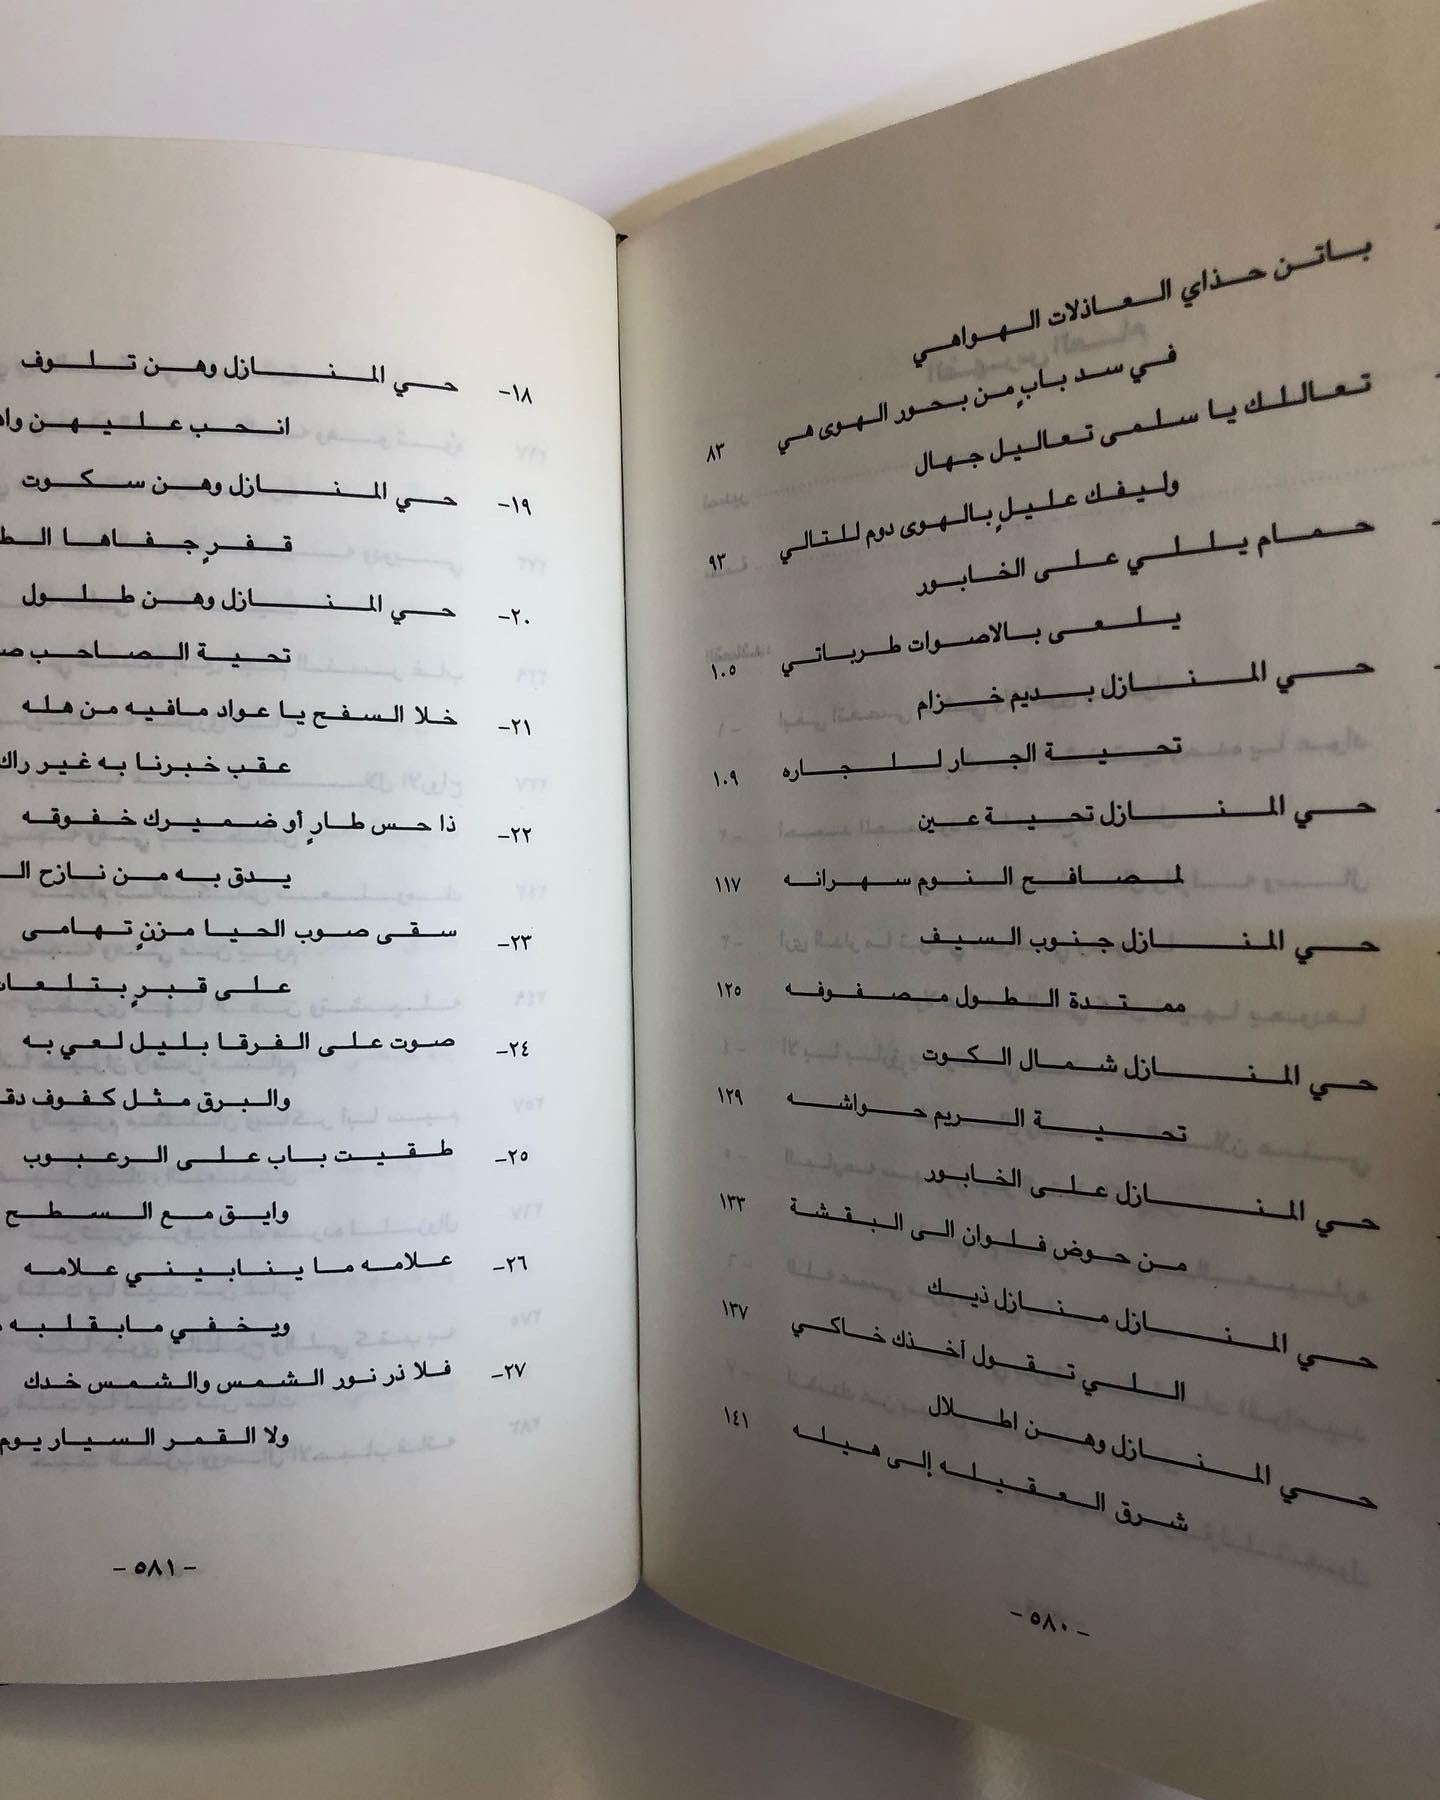 باتن حذاي العاذلات الهواهي
في سد بابٍ من بحور الهوى هي ٨٣
تعاللك يا سلمى تعاليل جهال
وليفك عليلٍ بالهوى دوم للتالي ٩٣
حمام يللي على الخابور
يلعى بالاصوات طرباتي ١٠٥
حي المنازل بديم خزام
تحية الجار للجاره ١٠٩
حي المنازل تحية عين
لمصافح النوم سهرانه ١١٧
حي المنازل جنوب السيف
ممتدة الطول مصفوفه ١٢٥
حي المنازل شمال الكوت
تحية الريم حواشه ١٢٩
حي المنازل على الخابور
من حوض فلوان الى البقشة ١٣٣
حي المنازل منازل ذيك
اللي تقول آخذك خاكي ١٣٧
حي المنازل وهن اطلال
شرق العقيله إلى هيله ١٤١
- ٥٨٠ -
١٨- حي المنازل وهن تلوف
انحب عليهن
١٩- حي المنازل وهن سكوت
قفرٍ جفاها
٢٠- حي المنازل وهن طلول
تحية الصاحب
٢١- خلا السفح يا عواد مافيه من هله
عقب خبرنا به غير
٢٢- ذا حس طارٍ أو ضميرك خفوقه
يدق به من نازح
٢٣- سقى صوب الحيا مزنٍ تهامى
على قبرٍ
٢٤- صوت على الفرقا بليل لعي به
والبرق مثل كفوف
٢٥- طقيت باب على الرعبوب
وايق مع السطح
٢٦- علامه ما ينابيني علامه
ويخفي مابقلبه
٢٧- فلا ذر نور الشمس والشمس خدك
ولا القمر السيار يوم
- ٥٨١ -